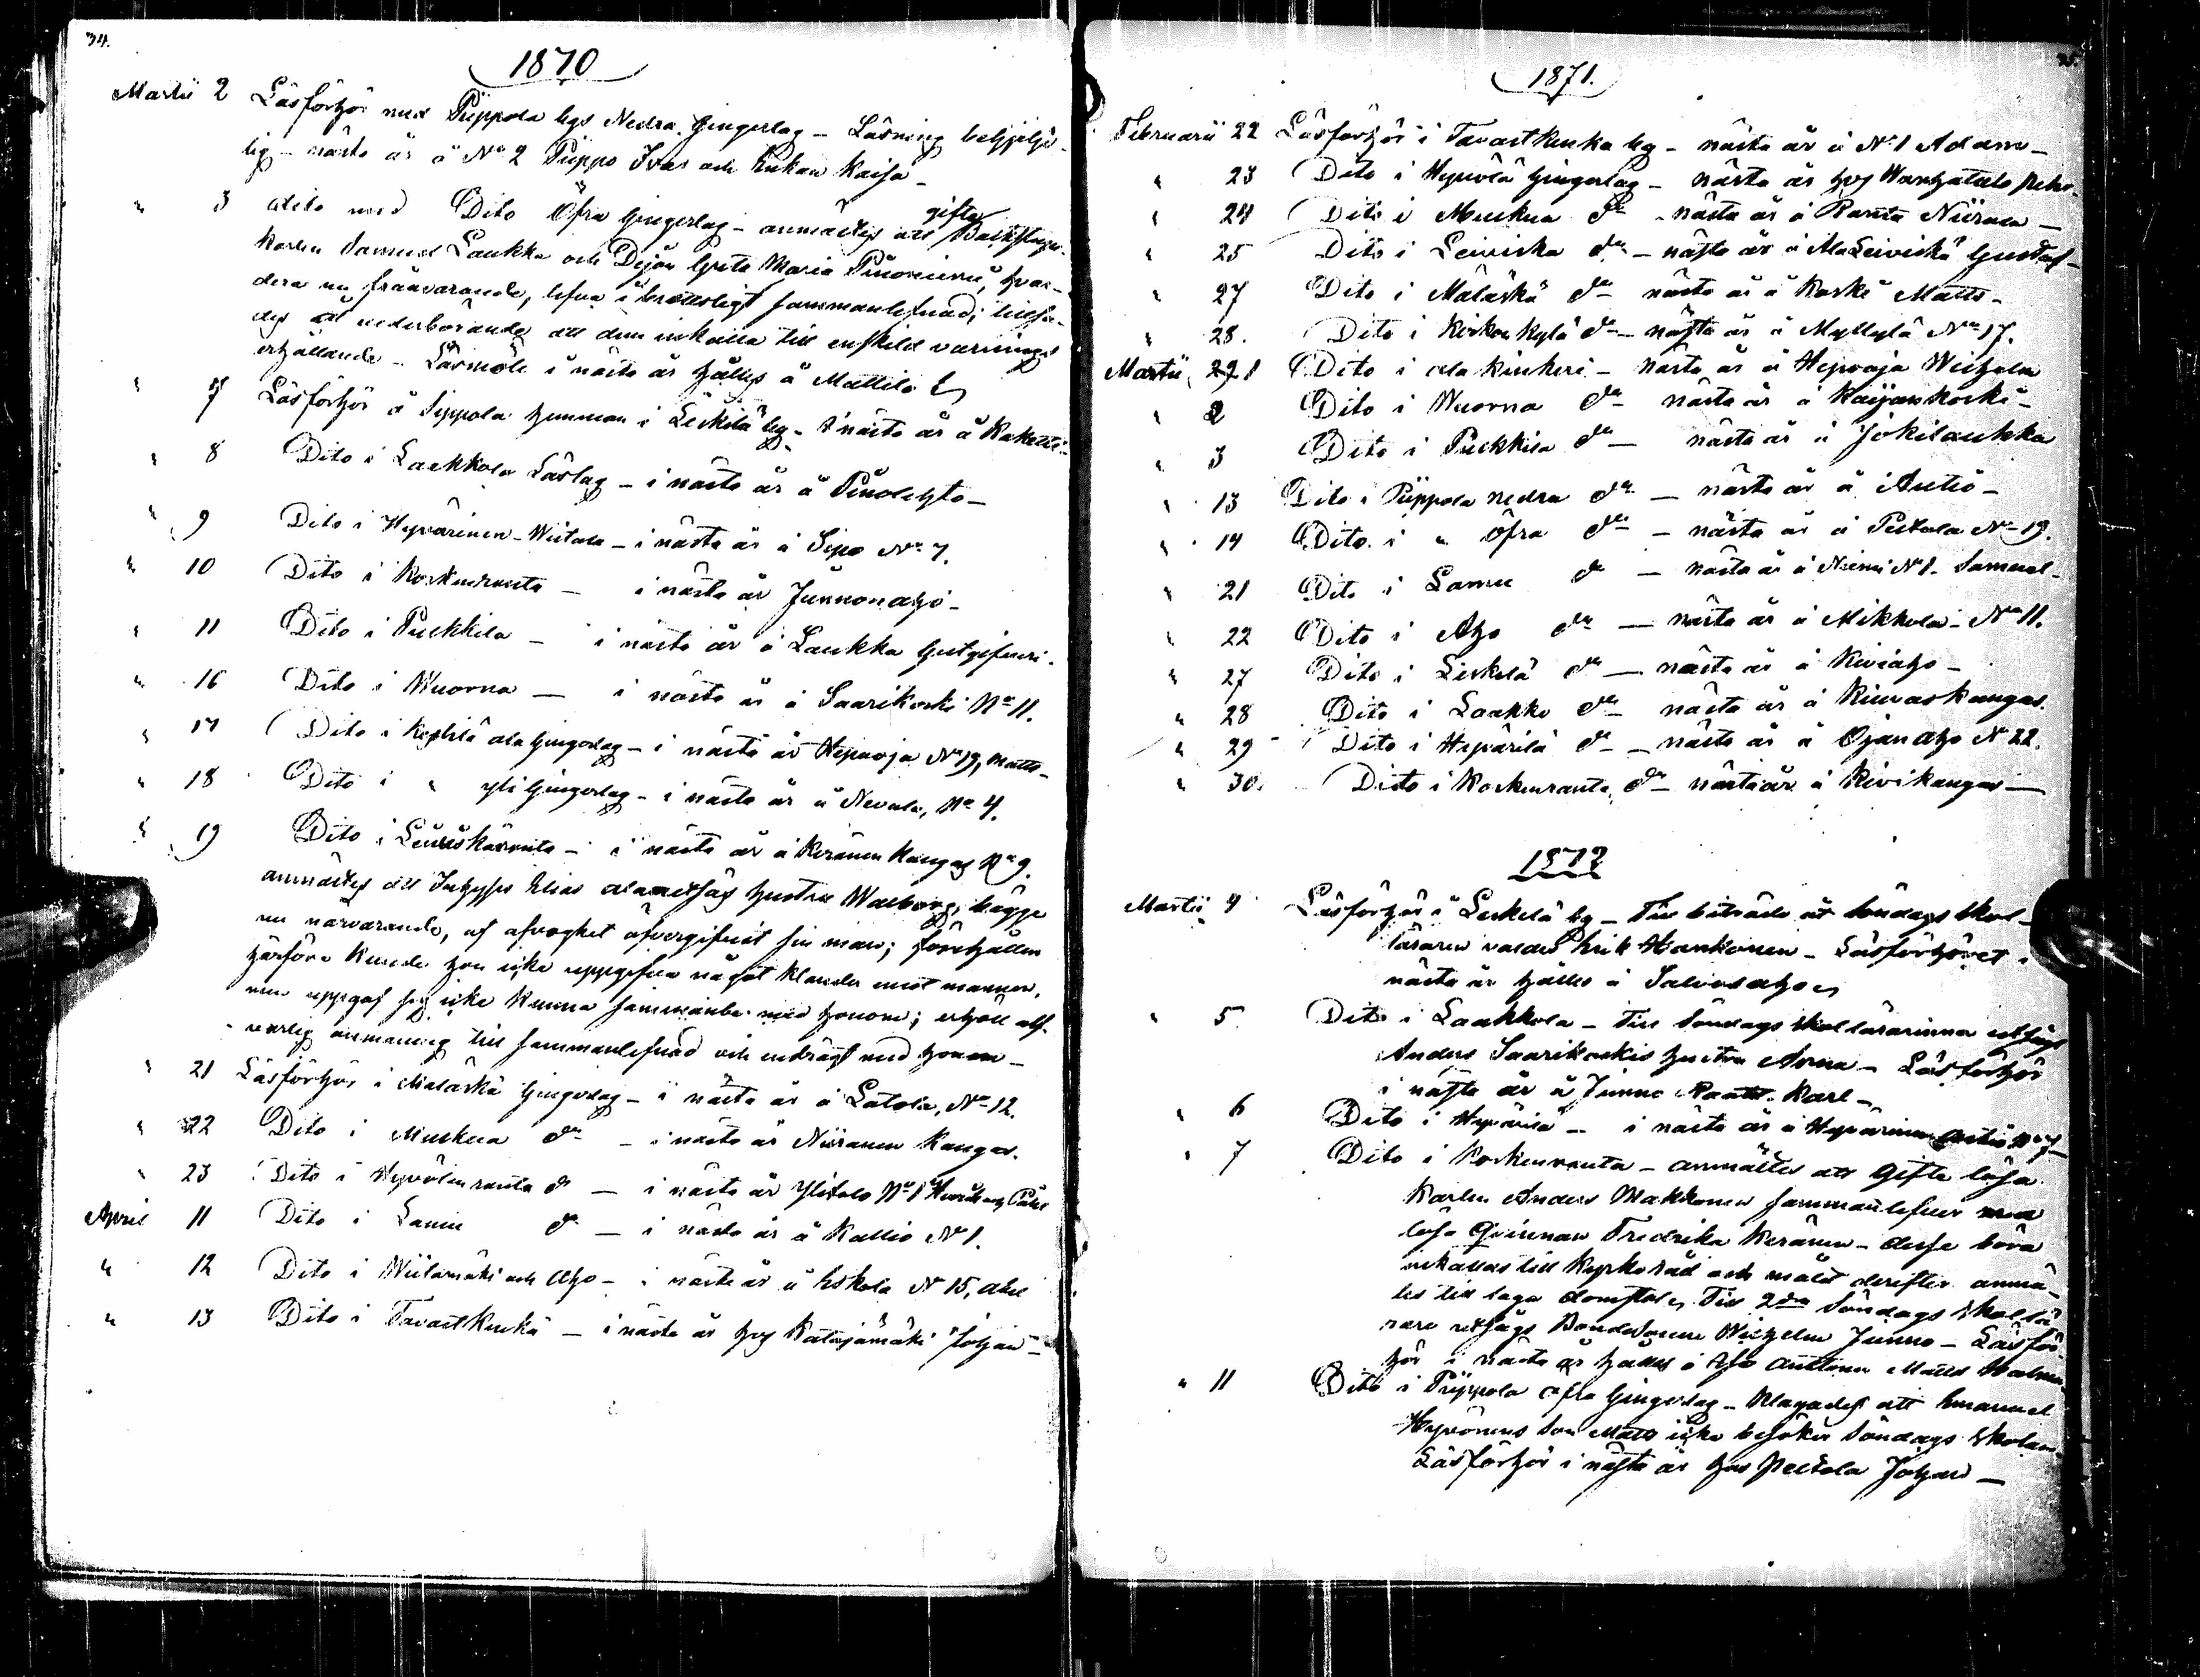 34.
1870
Martii 2 Läsförhör med Piippola bys Nedra Gingerlag - Läsning behjelp-
lig - nästa år å No 2 Piippo Ivar och Kukan Kaisa -
" 3 dito med Dito Öfra Gingerlag - anmältes att gifta Backstugu-
karlen Samuel Laukka och Pigan Greta Maria Piinoniemi, hvar-
dera nu frånvarande, lefva i brottsligt sammanlefnad; tillsa-
des vederbörande att dem inkalla till enskild varnings
erhållande - Läsmöte i nästa år hålles å Mattila
" 7 Läsförhör å Sippola hemman i Leskelä by - i nästa år å
" 8 Dito i Laakkola Läslag - i nästa år å Pinolehto -
" 9 Dito i Hyvärinen-Wiitala - i nästa år å Sipo No 7.
" 10 Dito i Koskenranta - i nästa år Junnonaho -
" 11 Dito i Pulkkila - i nästa år å Laukka Gestgifveri.
" 16 Dito i Wuorna - i nästa år å Saarikoski No 11.
" 17 Dito i Kestilä ala Gingerlag - i nästa år Hepooja No 19, Matts -
" 18 Dito i " yli Gingerlag - i nästa år å Nevala, No 4.
" 19 Dito i Leiviskäranta - i nästa år å Keränen Kangas No 9.
anmältes att Inhyses Elias hustru Walborg, bägge
nu närvarande, af afvoghet öfvergifvit sin man; förehållen
härföre kunde hon icke uppgifva något klander emot mannen,
men uppgaf sig icke kunna sammanbo med honom; erhöll alf-
varlig anmaning till sammanlefnad och endrägt med honom -
" 21 Läsförhör i Mäläskä Gingerlag - i nästa år å Latola, No 12.
" 22 Dito i Mulkua do - i nästa år Niiranen Kangas.
" 23 Dito i Hyvölenranta do - i nästa år Ylitalo No 1
April 11 Dito i Lamu do - i nästa år å Kallio No 1.
" 12 Dito i Wiitamäki och Aho - i nästa år å Eskola No 15, Abel
" 13 Dito i Tavastkenkä - i nästa år hos Katajamäki Johan -
35.
1871.
Februarii 22 Läsförhör i Tavastkenka by - nästa år å No 1 Adam -
" 23 Dito i Hyvölä Gingerlag - nästa år hos Wanhatalo Petter
" 24 Dito i Mulkua do - nästa år å Ranta Niirala -
" 25 Dito i Leiviska do - nästa år å AlaLeiviskä Gustaf -
" 27 Dito i Mäläskä do nästa år å Koski Matts -
" 28. Dito i Kirkonkylä do - nästa år å Myllylä No 17.
Martii 1 Dito i ala - nästa år å Hepooja
" 2 Dito i Wuorna do nästa år å Kaijankoski -
" 3 Dito i Pulkkila do - nästa år å Jokilaukka
" 13 Dito i Piippola nedra do - nästa år å Autio -
" 14 Dito i " öfra do - nästa år å Peltola No 19.
" 21 Dito i Lamu do - nästa år å Niemi No 1. Samuel -
" 22 Dito i Aho do - nästa år å Mikkola - No 11.
" 27 Dito i Leskelä do - nästa år å Kiviaho -
" 28 Dito i Laakko do - nästa år å Kiuraskangas.
" 29 Dito i Hyvärilä do - nästa år å Ojan aho No 22.
" 30. Dito i Koskenranta do - nästa år å Kivikangas -
1872
Martii 4 Läsförhör i Leskelä by - Till biträde åt Söndags Skol-
läraren valdes Erik Hankonen - Läsförhöret i
nästa år hålles å Salvosaho
" 5 Dito i Laakkola - Till Söndags skollärarinna utsågs
Anders Saarikoskis hustru Anna - Läsförhör
i nästa år å Junno Karl -
" 6 Dito i Hyvärilä - i nästa år å Hyvärinen Autio No 7 -
" 7 Dito i Koskenranta - anmältes att Gifta lösa
karlen Anders Makkonen sammanlefver med
lösa Qvinnan Fredrika Keränen - desse böra
inkallas till Kyrkoråd och målet derefter anmä-
les till laga domstol. Till 2dra Söndags skollä-
rare utsågs Bondesonen Wilhelm Junno - Läsför-
hör i nästa år hålles å Matts
" 11 Dito i Piippola öfra Gingerlag - klagades att Emanuel
Hyvönens son Matts icke besöker Söndags skolan.
Läsförhör i nästa år hos Peltola Johan -